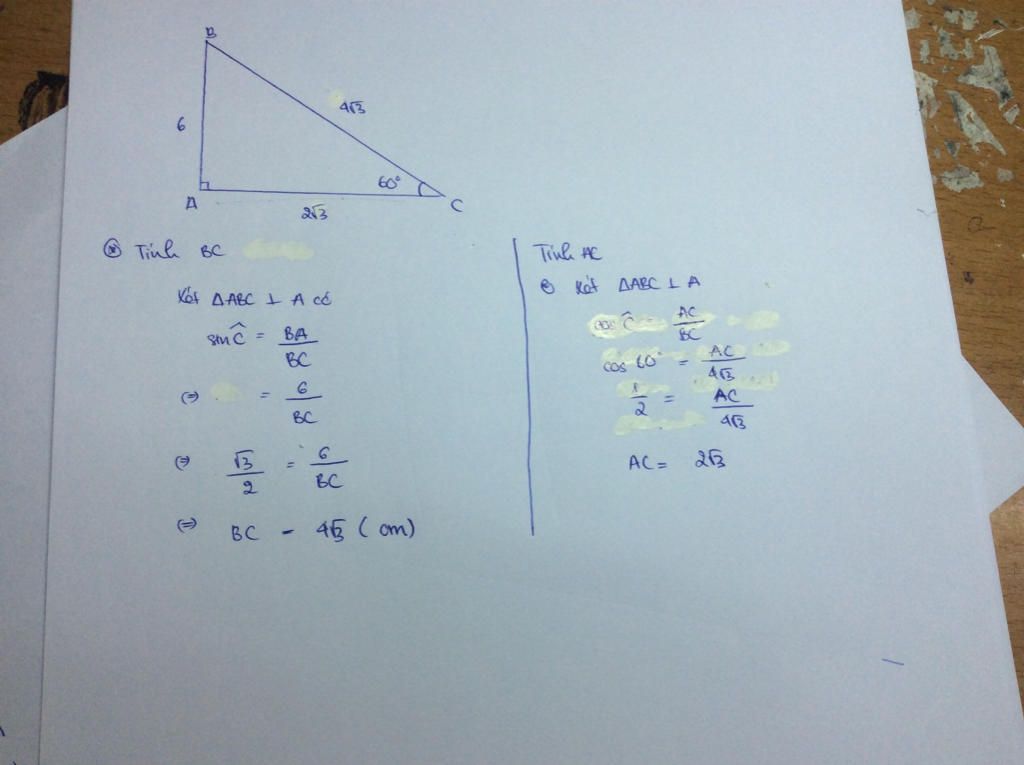 B
4√3
6
60°
A
C
2√3
⊛ Tính BC
Xét ΔABC ⊥ A có
sin Ĉ = BA/BC
(=) = 6/BC
(=) √3/2 = 6/BC
(=) BC = 4√3 (cm)
Tính AC
Xét ΔABC ⊥ A
cos Ĉ = AC/BC
cos 60° = AC/4√3
1/2 = AC/4√3
AC = 2√3